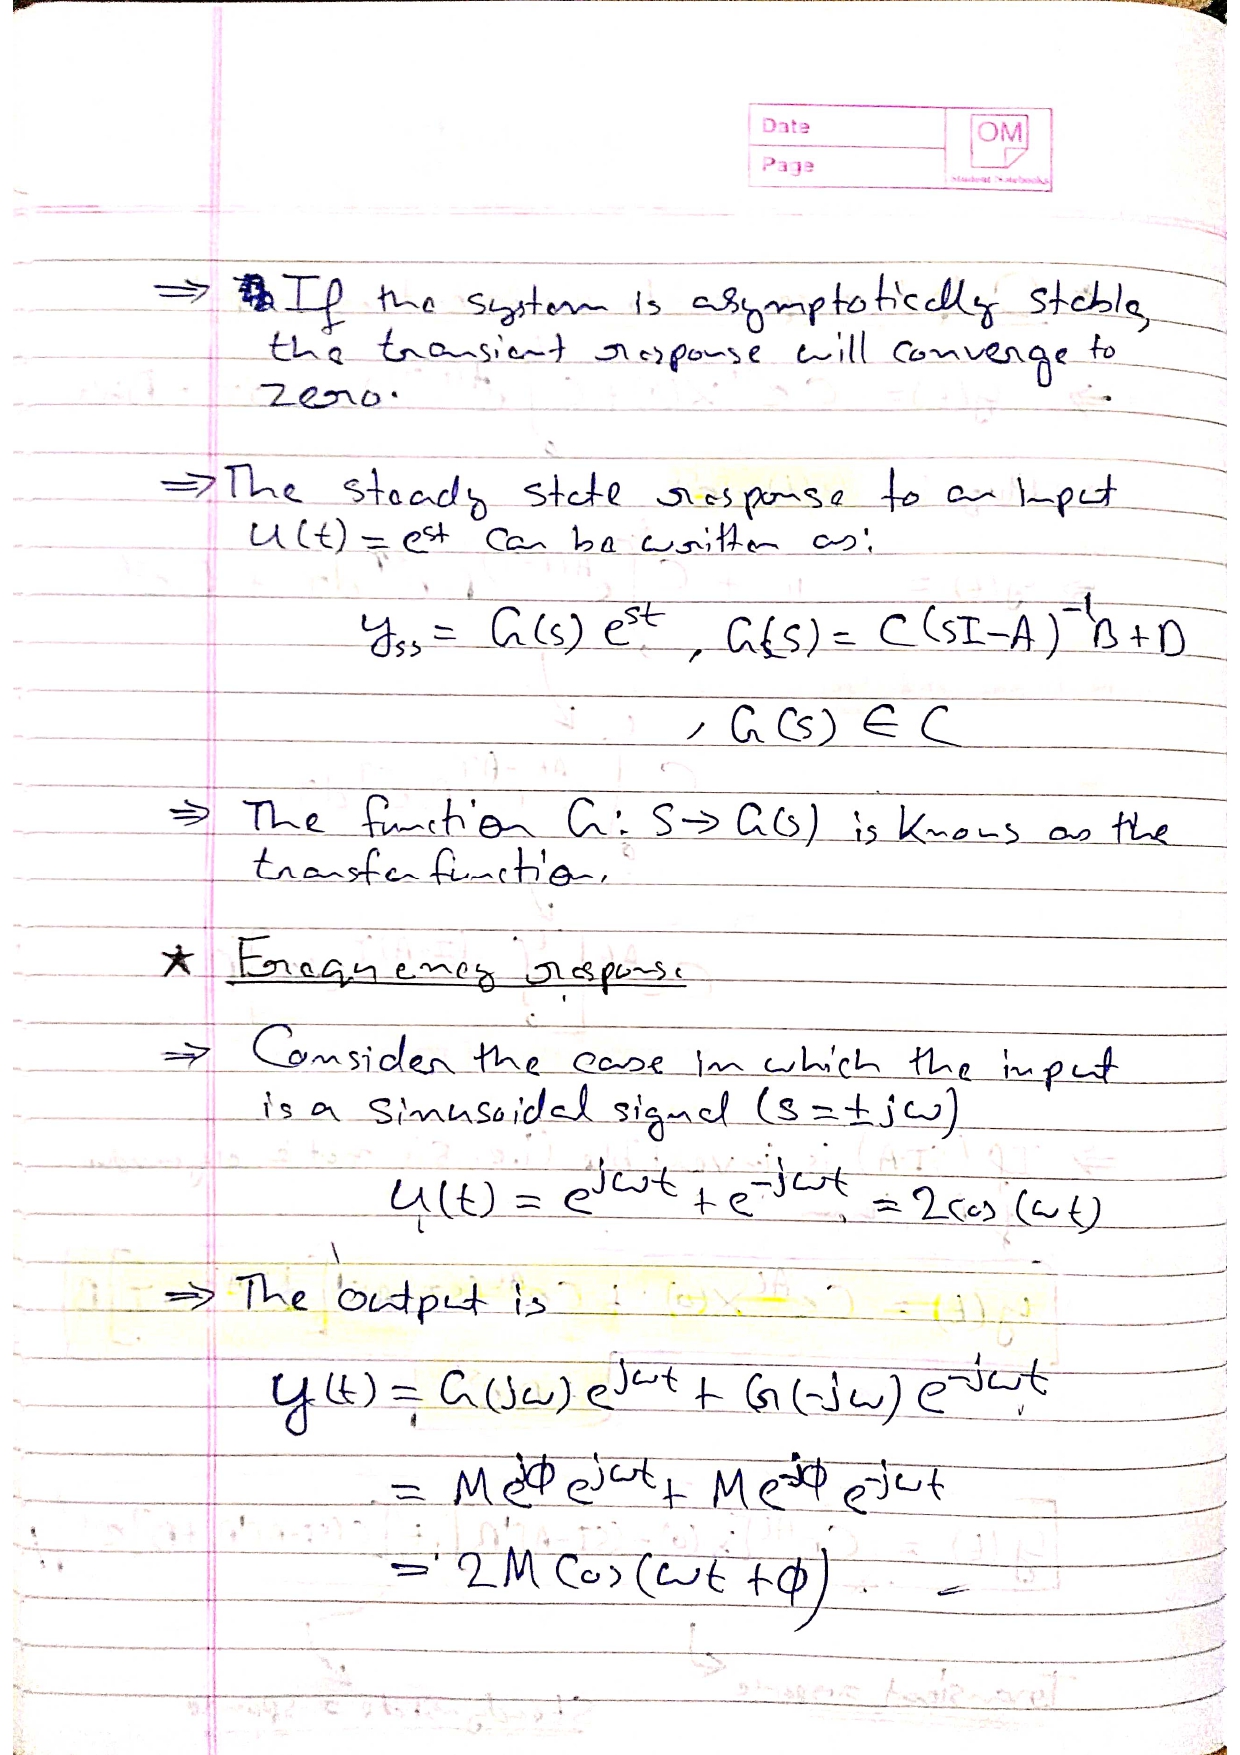 Date
Page
OM
Student Notebooks
⇒ If the system is asymptotically stable,
the transient response will converge to
zero.
⇒ The steady state response to an Input
u(t) = e^{st} can be written as:
y_{ss} = G(s) e^{st}, G(s) = C(sI-A)^{-1}B+D
, G(s) ∈ C
⇒ The function G: S→G(s) is knows as the
transfer function.
★ Frequency response
⇒ Consider the case in which the input
is a sinusoidal signal (s=±jω)
u(t) = e^{jωt} + e^{-jωt} = 2cos(ωt)
⇒ The output is
y(t) = G(jω) e^{jωt} + G(-jω) e^{-jωt}
= M e^{jϕ} e^{jωt} + M e^{-jϕ} e^{-jωt}
= 2M Cos(ωt + ϕ).